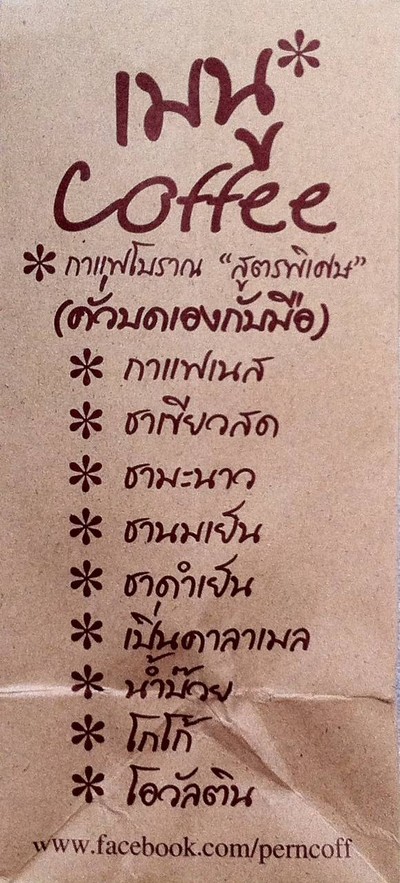 เมนู*
Coffee
* กาแฟโบราณ "สูตรพิเศษ"
(คั่วบดเองกับมือ)
* กาแฟเนส
* ชาเขียวสด
* ชามะนาว
* ชานมเย็น
* ชาดำเย็น
* เปิ่นคาลาเมล
* น้ำบ๊วย
* โกโก้
* โอวัลติน
www.facebook.com/perncoff